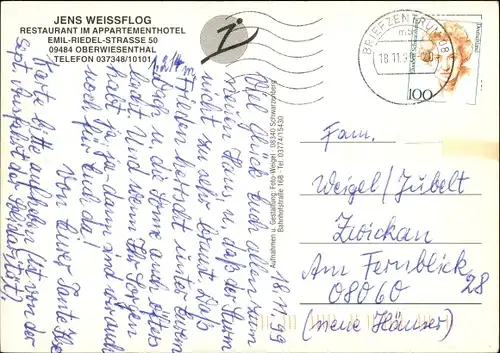 JENS WEISSFLOG
RESTAURANT IM APPARTEMENTHOTEL
EMIL-RIEDEL-STRASSE 50
09484 OBERWIESENTHAL
TELEFON 037348/10101
BRIEFZENTRUM 08
18.11.
100
Aufnahmen u. Gestaltung: Foto-Weigel · 08340 Schwarzenberg
Bahnhofstraße 16B · Tel. 03774/15430
18.11.99
Viel Glück Euch allen zum
neuen Haus u. daß der Turm
nicht zu sehr braust. Daß
Frieden herrscht unter Euren
Dach u. die Sonne auch öfters
lacht. Und wenn Ihr Sorgen
habt,
noch für Euch da!
Von Eurer Tante
Karte bitte aufheben
Fam.
Weigel/Jubelt
Zwickau
Am Fernblick
28
08060
(neue Häuser)